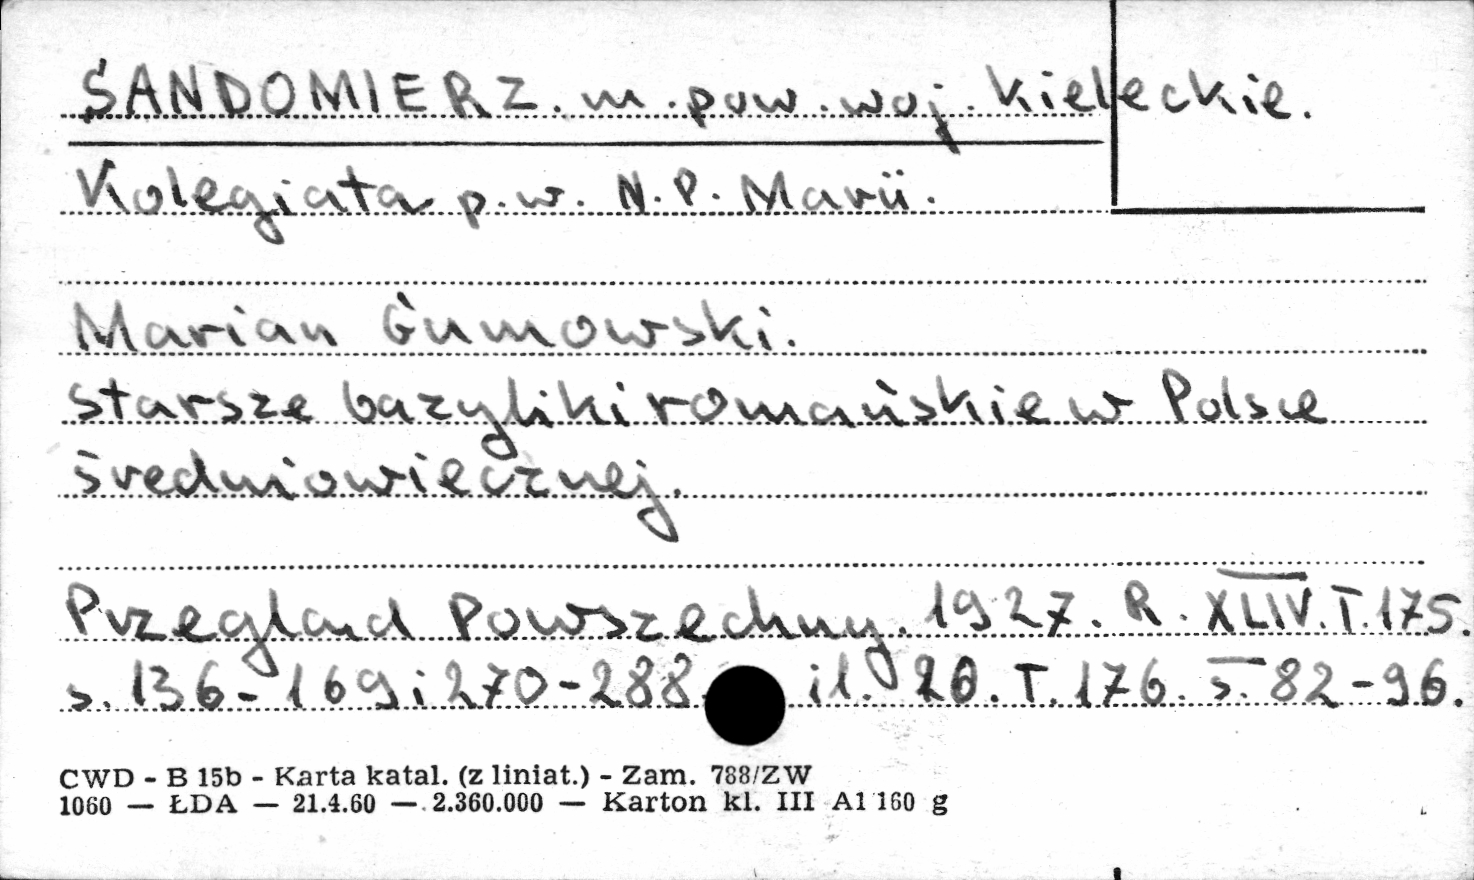 SANDOMIERZ. m. pow. woj. Kieleckie.
Kolegiata p.w. N.P. Marii.
Marian Gumowski.
Starsze bazyliki romańskie w Polsce
średniowiecznej.
Przegląd Powszechny. 1927. R. XLIV. T. 175.
s. 136-169 i 270-288. il. 20. T. 176. s. 82-96.
CWD - B 15b - Karta katal. (z liniat.) - Zam. 788/ZW
1060 — ŁDA — 21.4.60 — 2.360.000 — Karton kl. III A1 160 g